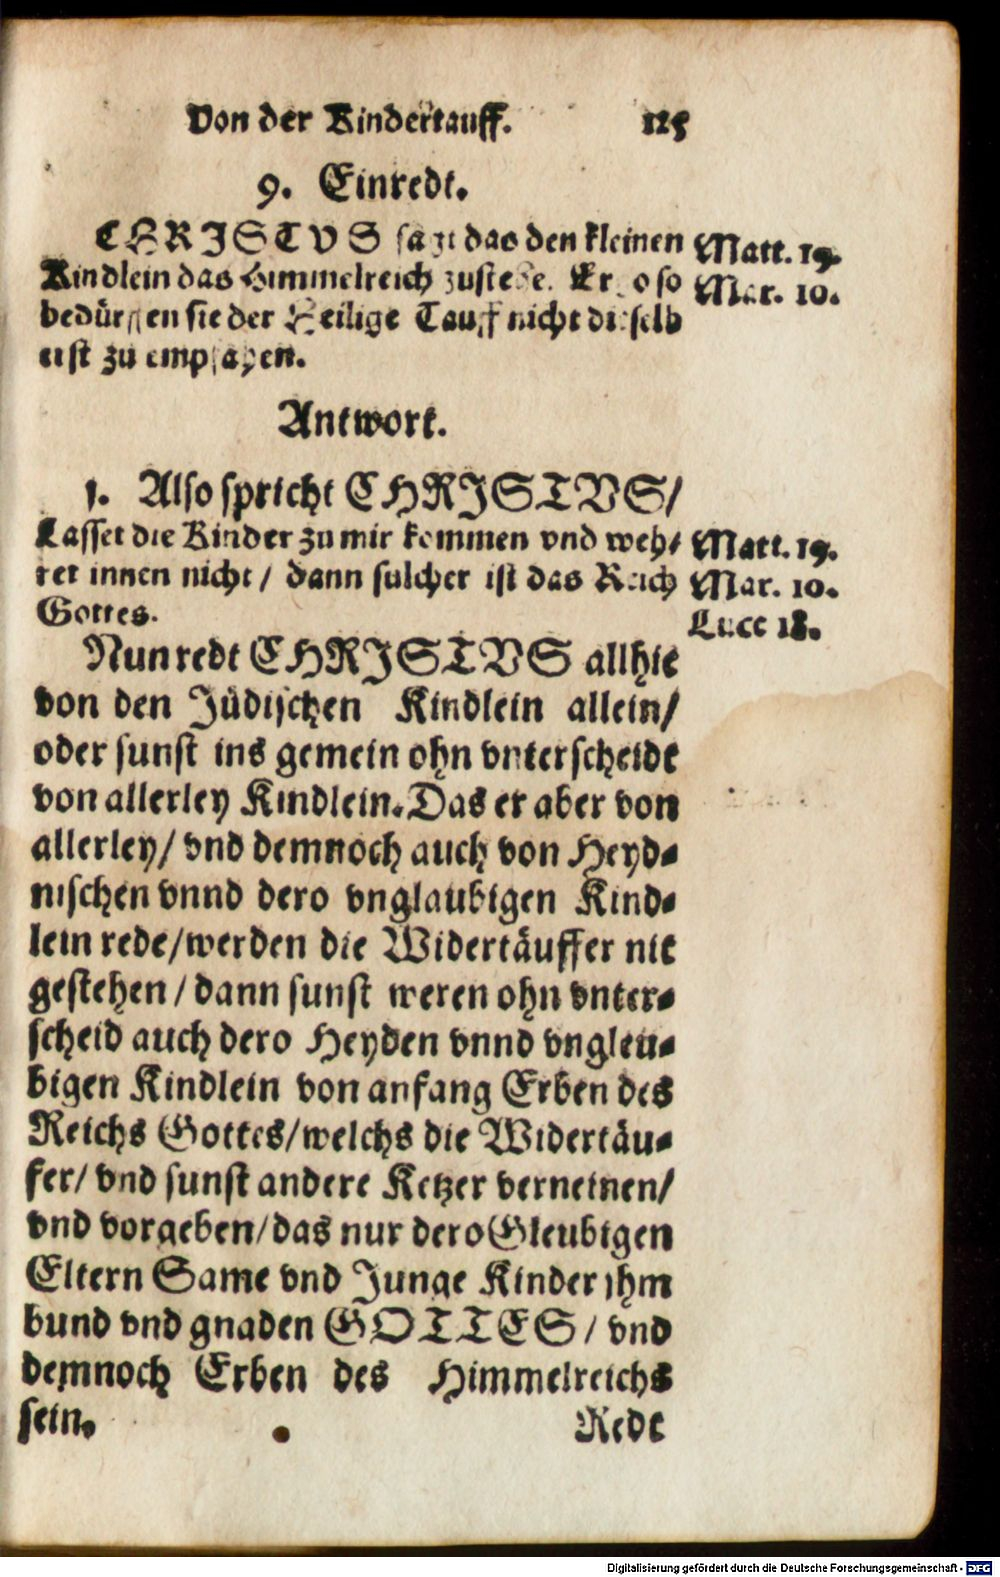 Von der Kindertauff. 125
9. Einredt.
CHRISTVS sagt das den kleinen
Kindlein das Himmelreich zustehe. Ergo so
bedürffen sie der Heilige Tauff nicht dieselb
erst zu empfahen.
Matt. 19.
Mar. 10.
Antwort.
1. Also spricht CHRISTVS/
Lasset die Kinder zu mir kommen vnd weh-
ret innen nicht / dann sulcher ist das Reich
Gottes.
Matt. 19.
Mar. 10.
Luce 18.
Nun redt CHRISTVS allhie
von den Jüdischen Kindlein allein/
oder sunst ins gemein ohn vnterscheidt
von allerley Kindlein. Das er aber von
allerley/ vnd demnoch auch von Heyd-
nischen vnnd dero vnglaubigen Kind-
lein rede/werden die Widertäuffer nit
gestehen / dann sunst weren ohn vnter-
scheid auch dero Heyden vnnd vngleu-
bigen Kindlein von anfang Erben des
Reichs Gottes/welchs die Widertäu-
fer/ vnd sunst andere Ketzer verneinen/
vnd vorgeben/das nur dero Gleubigen
Eltern Same vnd Junge Kinder ihm
bund vnd gnaden GOTTES / vnd
demnoch Erben des Himmelreichs
sein.
Redt
Digitalisierung gefördert durch die Deutsche Forschungsgemeinschaft - DFG